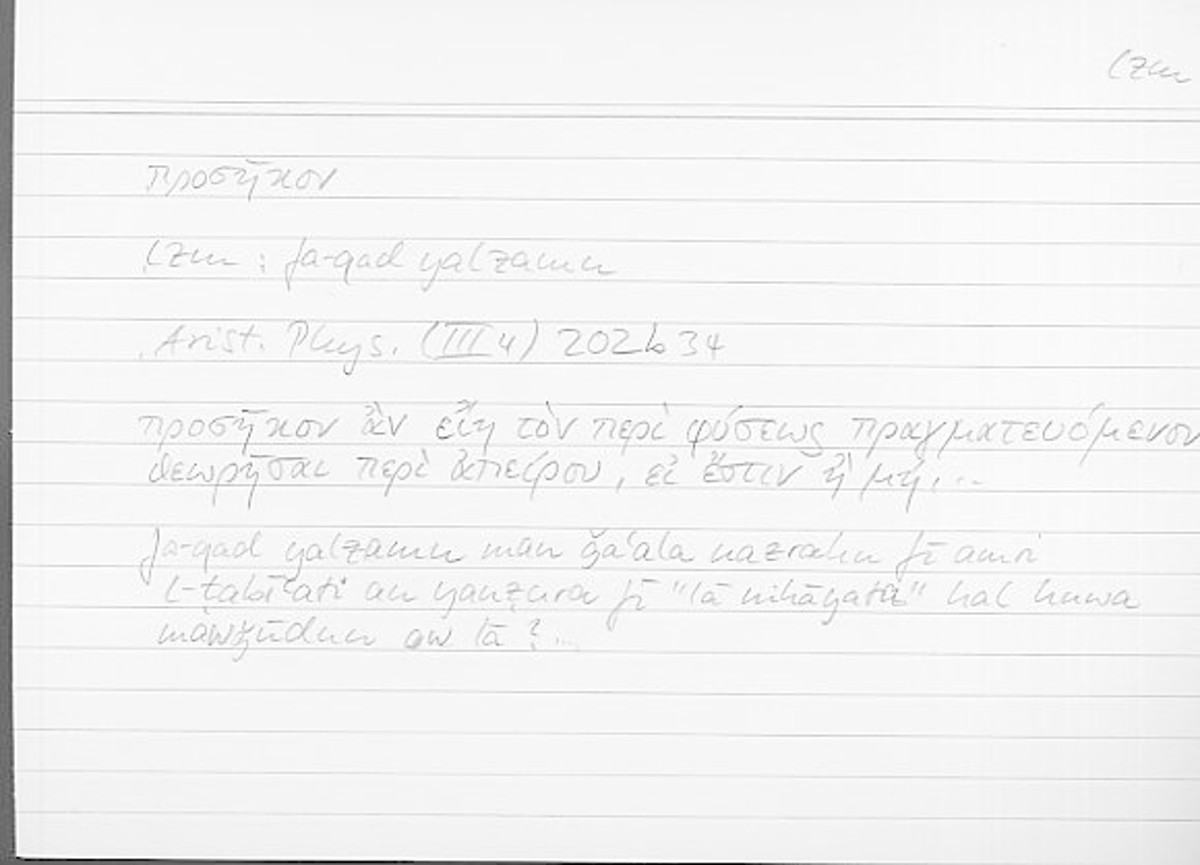 lzm
προσῆκον
lzm : fa-qad yalzamu
Arist. Phys. (III 4) 202b34
προσῆκον ἂν εἴη τὸν περὶ φύσεως πραγματευόμενον
θεωρῆσαι περὶ ἀπείρου, εἰ ἔστιν ἢ μή, ...
fa-qad yalzamu man ǧaʿala naẓrahu fī amri
l-ṭabīʿati an yanẓura fī "lā nihāyata" hal huwa
mawǧūdun aw lā ? ...